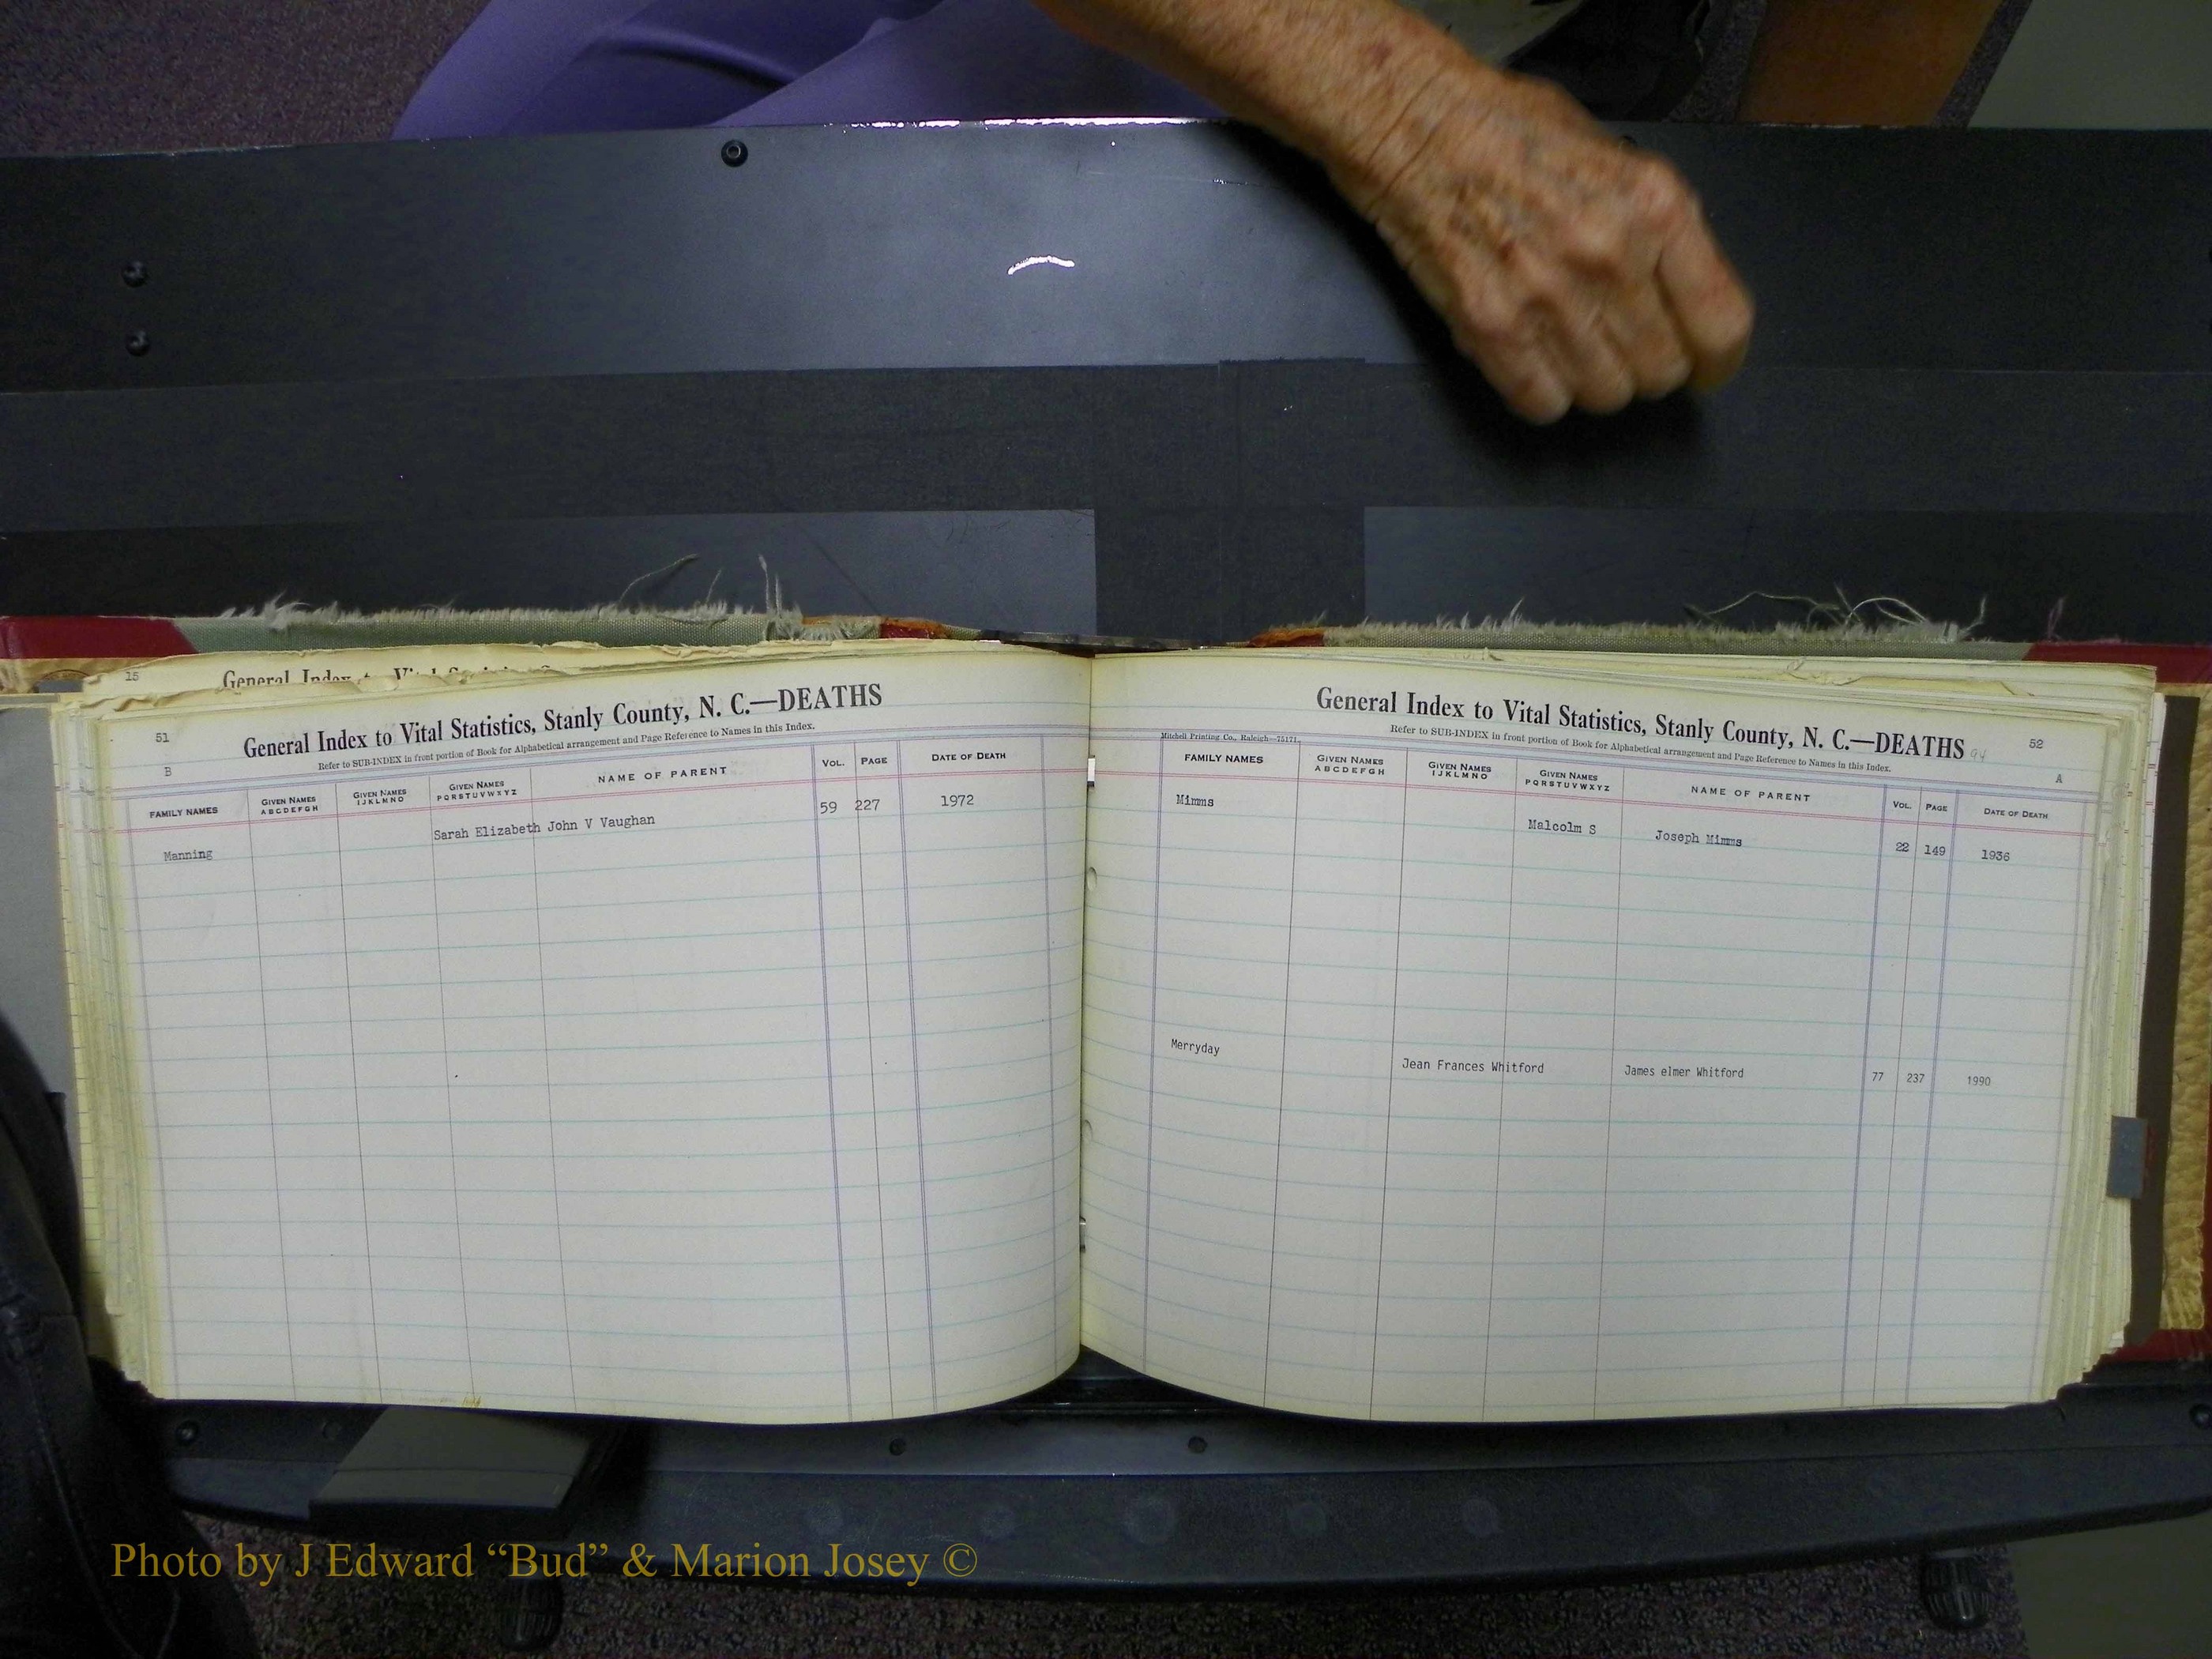 15
General Index to Vital Statistics
51
General Index to Vital Statistics, Stanly County, N. C.—DEATHS
B
Refer to SUB-INDEX in front portion of Book for Alphabetical arrangement and Page Reference to Names in this Index.
FAMILY NAMES GIVEN NAMES ABCDEFGH GIVEN NAMES IJKLMNO GIVEN NAMES PQRSTUVWXYZ NAME OF PARENT VOL. PAGE DATE OF DEATH
Sarah Elizabeth John V Vaughan 59 227 1972
Manning
General Index to Vital Statistics, Stanly County, N. C.—DEATHS 94
52
Mitchell Printing Co., Raleigh—75171
Refer to SUB-INDEX in front portion of Book for Alphabetical arrangement and Page Reference to Names in this Index.
A
FAMILY NAMES GIVEN NAMES ABCDEFGH GIVEN NAMES IJKLMNO GIVEN NAMES PQRSTUVWXYZ NAME OF PARENT VOL. PAGE DATE OF DEATH
Mimms
Malcolm S Joseph Mimms 22 149 1936
Merryday
Jean Frances Whitford James elmer Whitford 77 237 1990
Photo by J Edward “Bud” & Marion Josey ©